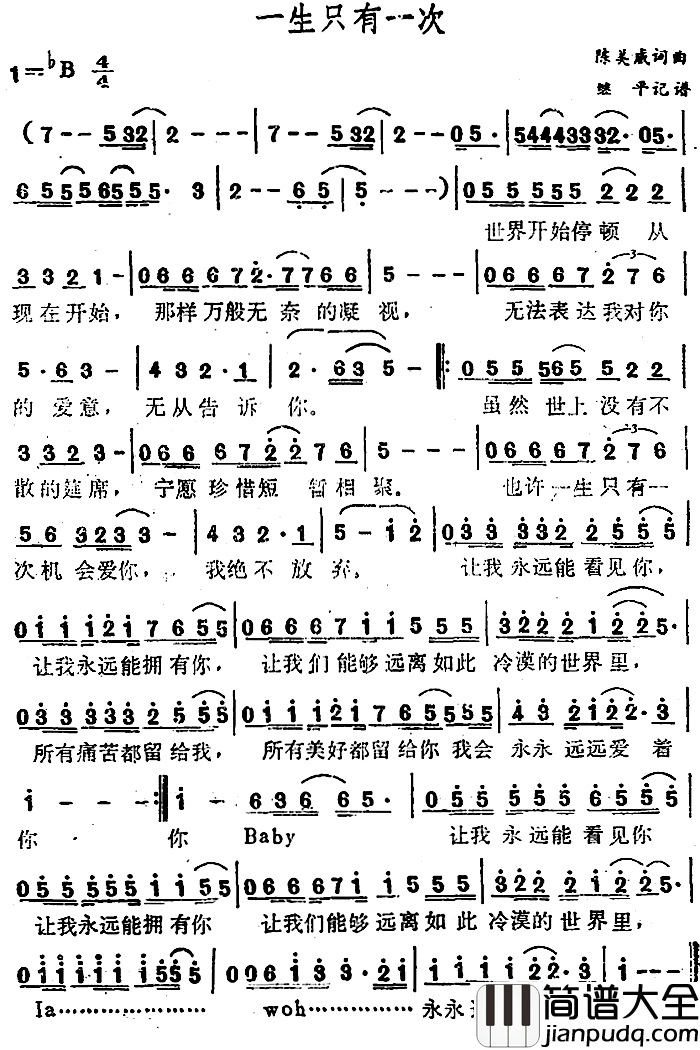 一生只有一次
1=♭B 4/4
陈美威词曲
继 平记谱
(7 - - 5 3 2 | 2 - - - | 7 - - 5 3 2 | 2 - - 0 5· | 5 4 4 4 3 3 3 2· 0 5· |
6 5 5 5 6 5 5 5· 3 | 2 - - 6 5 | 5 - - -) | 0 5 5 5 5 5 2 2 2 |
世界开始停顿 从
3 3 2 1 - | 0 6 6 6 7 2· 7 7 6 6 | 5 - - - | 0 6 6 6 6 7 2 7 6 |
现在开始, 那样万般无奈的凝视, 无法表达我对你
5· 6 3 - | 4 3 2· 1 | 2· 6 3 5 - | 0 5 5 5 6 5 5 2 2 |
的爱意, 无从告诉你。 虽然世上没有不
3 3 2 3 - | 0 6 6 6 6 7 2 2 7 6 | 5 - - - | 0 6 6 6 6 7 2 7 6 |
散的筵席, 宁愿珍惜短暂相聚。 也许一生只有一
5 6 3 2 3 3 - | 4 3 2· 1 | 5 - i 2 | 0 3 3 3 3 2 2 5 5 5 |
次机会爱你, 我绝不放弃。 让我永远能看见你,
0 i i i 2 i 7 6 5 5 | 0 6 6 6 7 i i 5 5 5 | 3 2 2 2 i 2 2 5· |
让我永远能拥有你, 让我们能够远离如此 冷漠的世界里,
0 3 3 3 3 3 2 5 5 5 | 0 i i i 2 i 7 6 5 5 5 5 | 4 3 2 i 2 2· 3 |
所有痛苦都留给我, 所有美好都留给你我会 永永远远爱着
i - - - :| i - 6 3 6 6 5· | 0 5 5 5 5 5 6 5 5 5 |
你 你 Baby 让我永远能看见你
0 5 5 5 5 5 i i 5 5 | 0 6 6 6 7 i i 5 5 5 | 3 2 2 2 i 2 2 5· |
让我永远能拥有你 让我们能够远离如此 冷漠的世界里,
0 i i i i i i 5 5 5 | 0 0 6 3 3· 2 i | i i i i 2 2· 3 | i - - -
Ia………………… woh……………永永
简谱大全
jianpudq.com